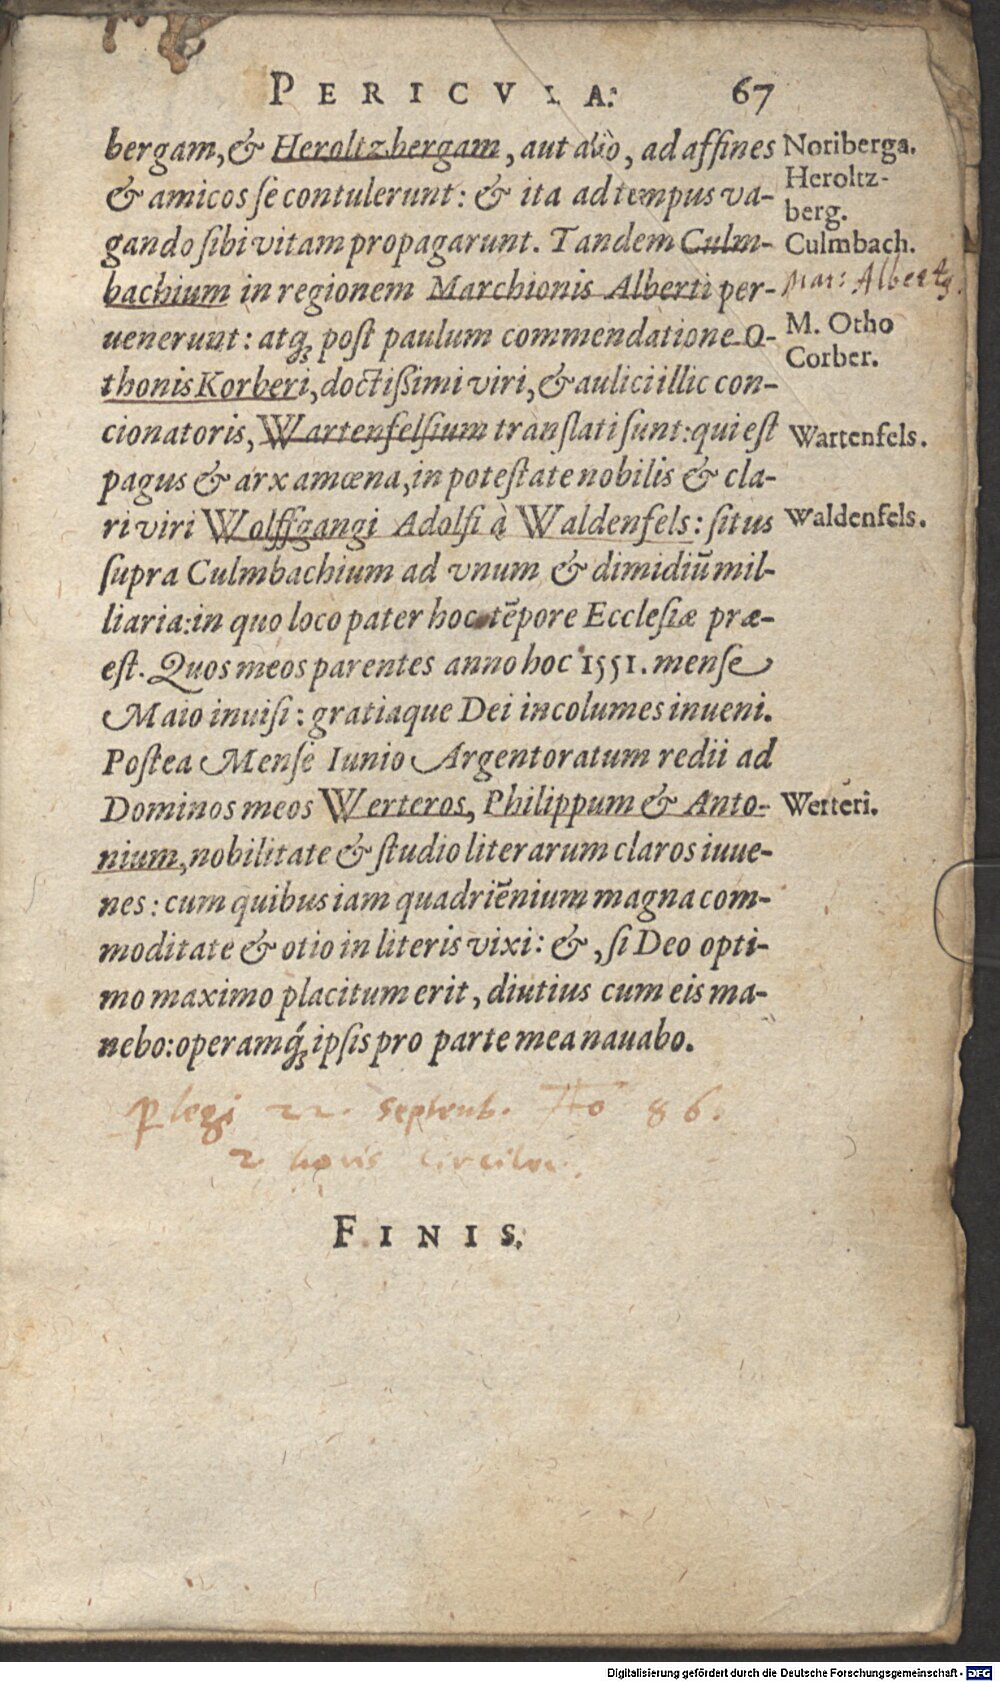 PERICVLA. 67
bergam, & Heroltzbergam, aut aliò, ad affines
Noriberga.
& amicos se contulerunt: & ita ad tempus va-
Heroltz-
berg.
gando sibi vitam propagarunt. Tandem Culm-
Culmbach.
bachium in regionem Marchionis Alberti per-
Mar: Albert9.
uenerunt: atq́; post paulum commendatione O-
M. Otho
Corber.
thonis Korberi, doctissimi viri, & aulici illic con-
cionatoris, Wartenfelsium translati sunt: qui est
Wartenfels.
pagus & arx amœna, in potestate nobilis & cla-
ri viri Wolffgangi Adolfi à Waldenfels: situs
Waldenfels.
supra Culmbachium ad vnum & dimidiũ mil-
liaria: in quo loco pater hoc tẽpore Ecclesiæ præ-
est. Quos meos parentes anno hoc 1551. mense
Maio inuisi: gratiaque Dei incolumes inueni.
Postea Mense Iunio Argentoratum redii ad
Dominos meos Werteros, Philippum & Anto-
Werteri.
nium, nobilitate & studio literarum claros iuue-
nes: cum quibus iam quadriẽnium magna com-
moditate & otio in literis vixi: &, si Deo opti-
mo maximo placitum erit, diutius cum eis ma-
nebo: operamq́; ipsis pro parte mea nauabo.
ꝑlegi 22. Septemb. Aō 86.
2 horis circiter.
FINIS.
Digitalisierung gefördert durch die Deutsche Forschungsgemeinschaft - DFG